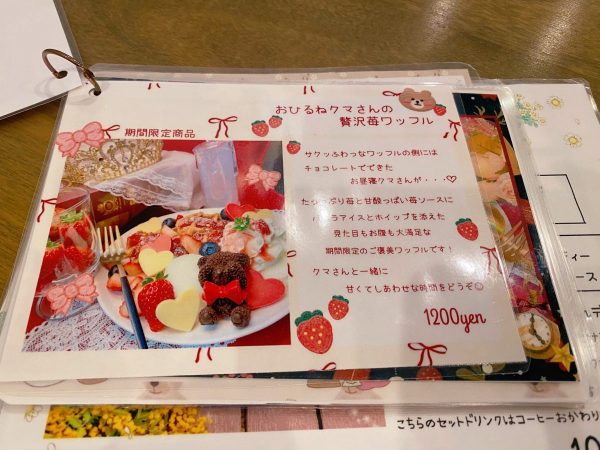 おひるねクマさんの
贅沢苺ワッフル
期間限定商品
サクッふわっなワッフルの側には
チョコレートでできた
お昼寝クマさんが・・・♡
たっぷり苺と甘酸っぱい苺ソースに
バニラアイスとホイップを添えた
見た目もお腹も大満足な
期間限定のご褒美ワッフルです！
クマさんと一緒に
甘くてしあわせな時間をどうぞ☺
1200yen
ディー
ース
こちらのセットドリンクはコーヒーおかわり